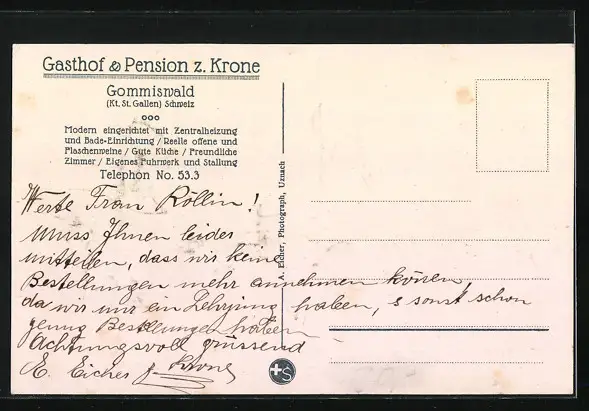 Gasthof & Pension z. Krone
Gommiswald
(Kt. St. Gallen) Schweiz
Modern eingerichtet mit Zentralheizung
und Bade-Einrichtung / Reelle offene und
Flaschenweine / Gute Küche / Freundliche
Zimmer / Eigenes Fuhrwerk und Stallung
Telephon No. 53.3
Werte Frau Röllin!
Muss Ihnen leider
mitteilen, dass wir keine
Bestellungen mehr annehmen können
da wir nur ein Lehrjung haben, & sonst schon
genug Bestellungen haben
Achtungsvoll grüssend
E. Eicher z. Krone
A. Eicher, Photograph, Uznach
S